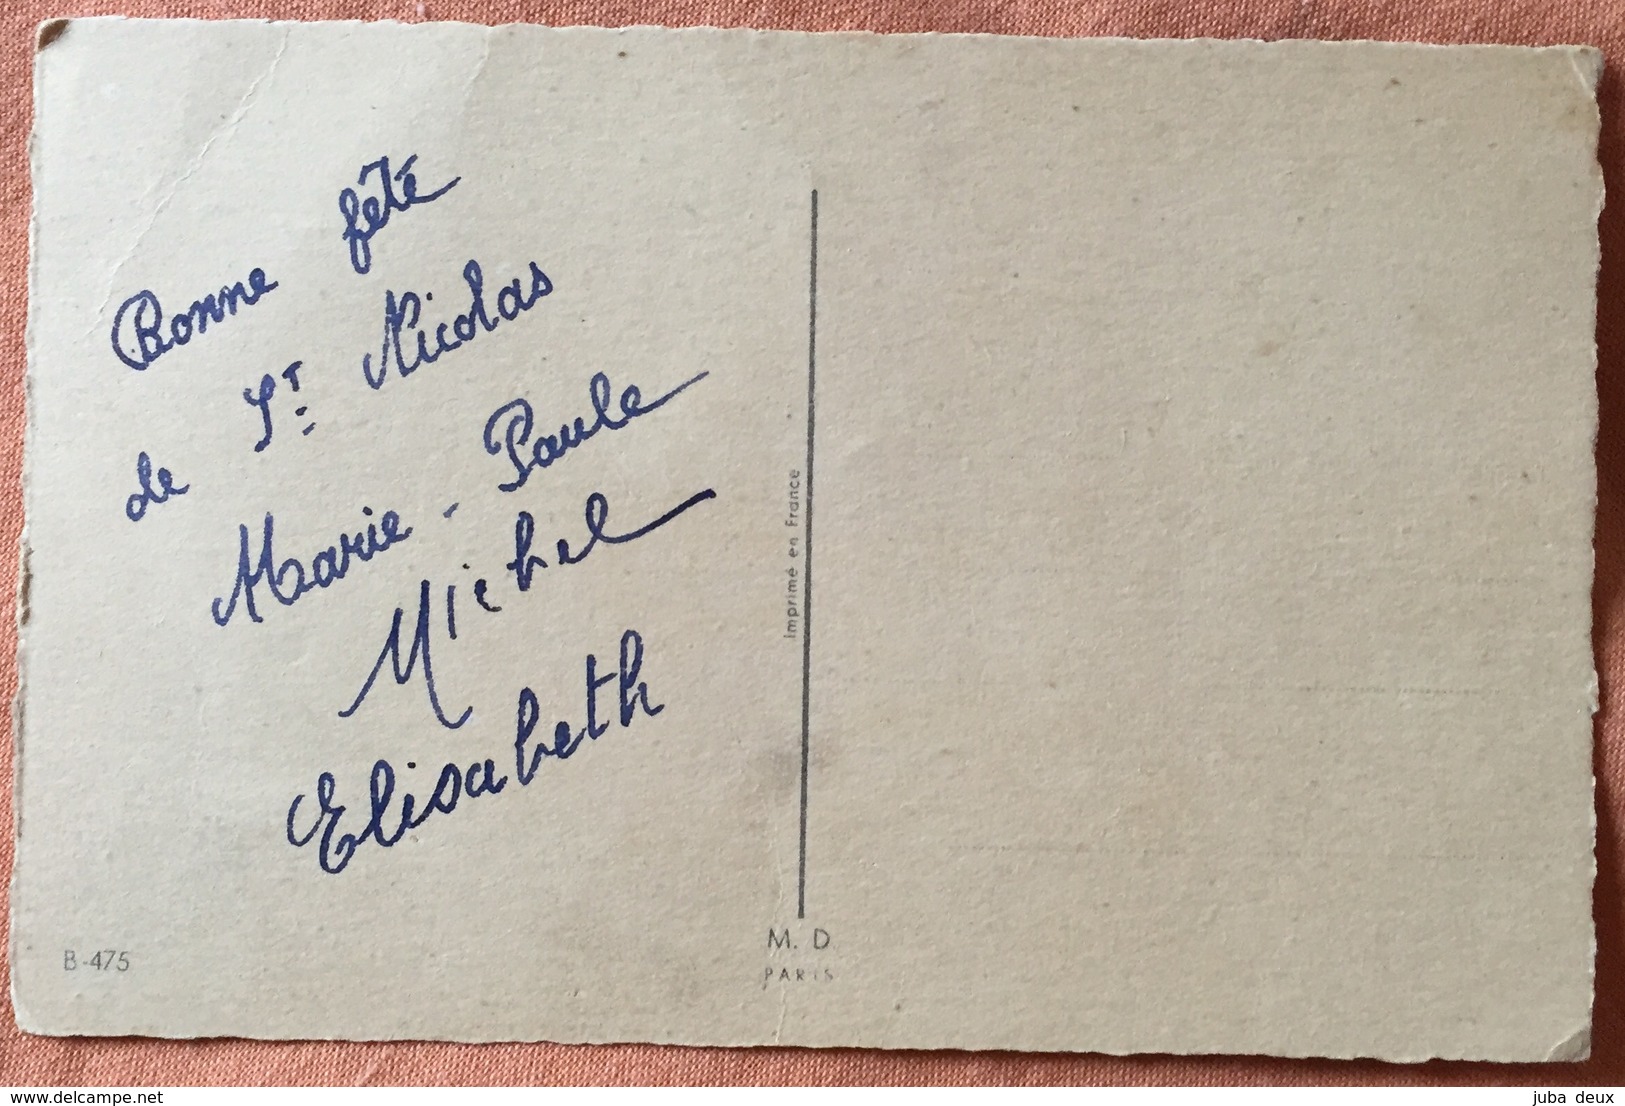 Bonne fêté
de St Nicolas
Marie-Paule
Michel
Elisabeth
Imprimé en France
B-475
M. D
PARIS
www.delcampe.net
juba deux